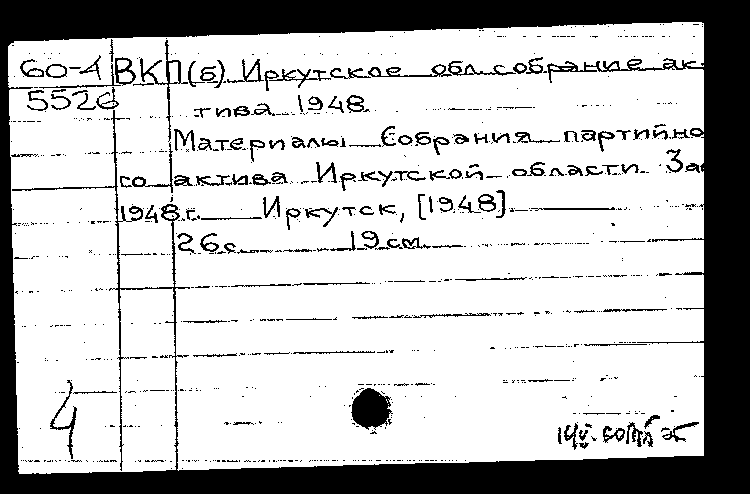 60-4 ВКП(б). Иркутское обл. собрание ак-
5526 тива 1948.
Материалы Собрания партийно
го актива Иркутской области. За
1948 г. Иркутск, [1948].
26 с. 19 см.
4